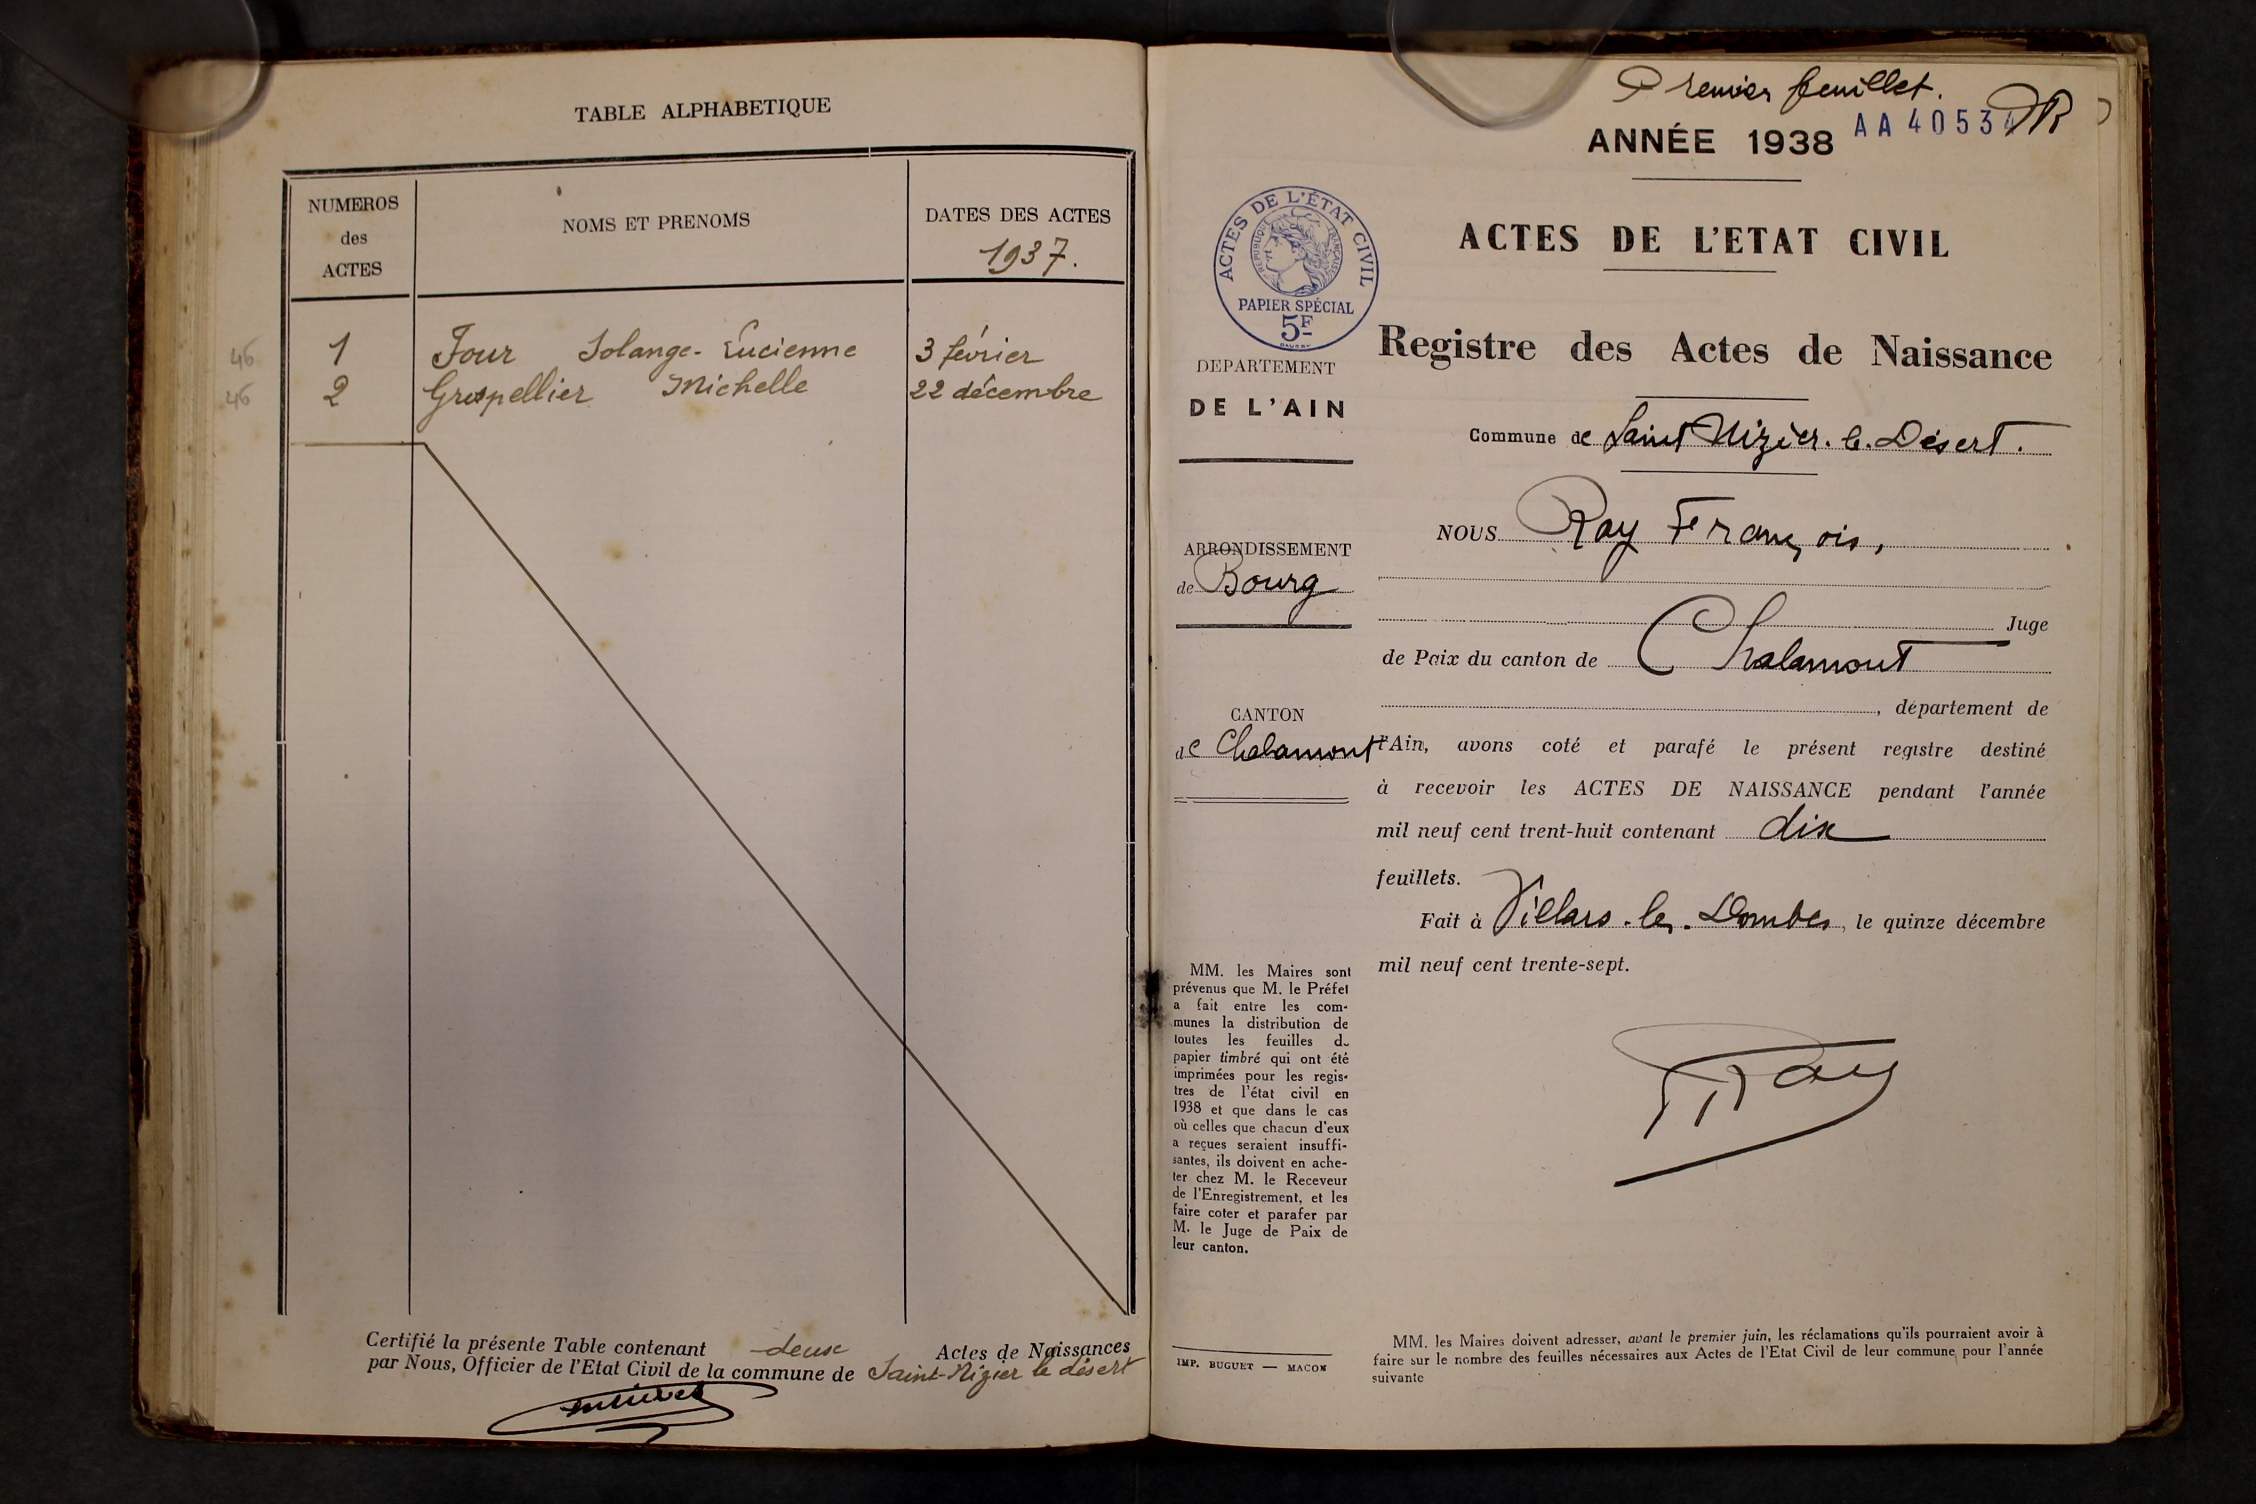 TABLE ALPHABETIQUE
NUMEROS
des
ACTES
NOMS ET PRENOMS
DATES DES ACTES
1937.
46 1 Jour Solange-Lucienne 3 février
46 2 Grospellier Michelle 22 décembre
Certifié la présente Table contenant deux Actes de Naissances
par Nous, Officier de l'Etat Civil de la commune de Saint-Nizier le désert
Premier feuillet.
ANNÉE 1938
AA 4053
ACTES DE L'ÉTAT CIVIL
REPUBLIQUE FRANÇAISE
PAPIER SPÉCIAL
5F
DEPARTEMENT
DE L'AIN
ARRONDISSEMENT
de Bourg
CANTON
de Chalamont
MM. les Maires sont
prévenus que M. le Préfet
a fait entre les com-
munes la distribution de
toutes les feuilles de
papier timbré qui ont été
imprimées pour les regis-
tres de l'état civil en
1938 et que dans le cas
où celles que chacun d'eux
a reçues seraient insuffi-
santes, ils doivent en ache-
ter chez M. le Receveur
de l'Enregistrement, et les
faire coter et parafer par
M. le Juge de Paix de
leur canton.
IMP. BUGUET — MACON
ACTES DE L'ETAT CIVIL
Registre des Actes de Naissance
Commune de Saint Nizier. le. Désert.
NOUS Ray François,
Juge
de Paix du canton de Chalamont
, département de
l'Ain, avons coté et parafé le présent registre destiné
à recevoir les ACTES DE NAISSANCE pendant l'année
mil neuf cent trent-huit contenant dix
feuillets.
Fait à Villars-les-Dombes, le quinze décembre
mil neuf cent trente-sept.
Ray
MM. les Maires doivent adresser, avant le premier juin, les réclamations qu'ils pourraient avoir à
faire sur le nombre des feuilles nécessaires aux Actes de l'Etat Civil de leur commune pour l'année
suivante